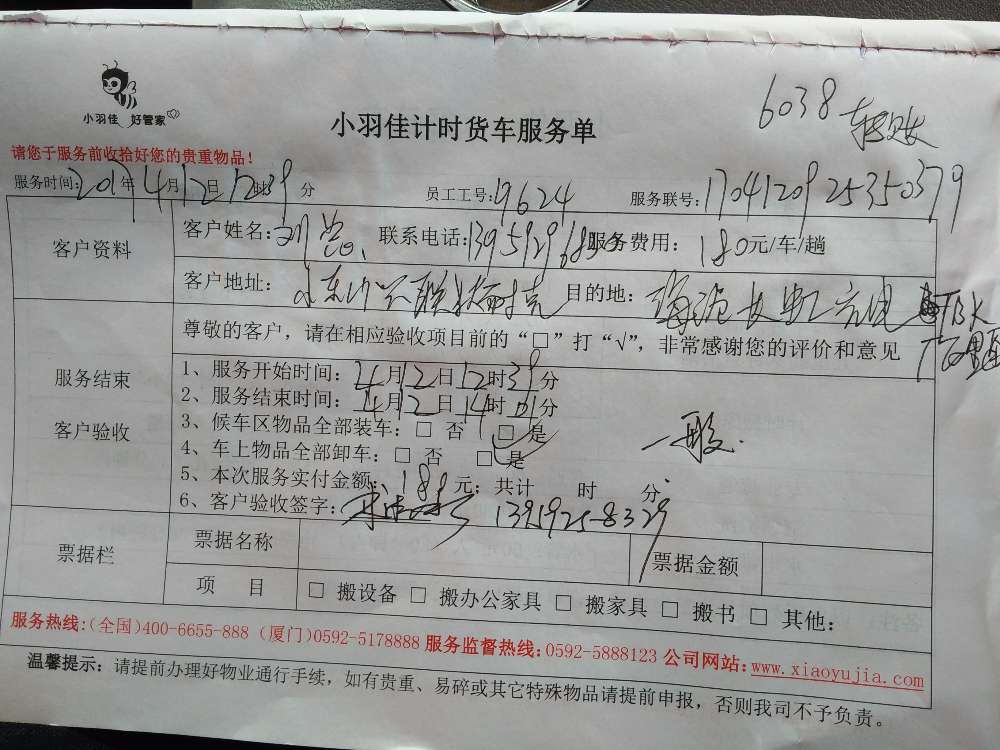 6038 转账
小羽佳 好管家
小羽佳计时货车服务单
请您于服务前收拾好您的贵重物品！
服务时间：2017年4月12日12时39分 员工工号：19624 服务联号：1704120925350379
客户资料 客户姓名： 联系电话： 服务费用：180元/车/趟
客户地址： 目的地：
尊敬的客户，请在相应验收项目前的“□”打“√”，非常感谢您的评价和意见
服务结束
客户验收
1、服务开始时间：4月12日12时39分
2、服务结束时间：4月12日14时01分
3、候车区物品全部装车：□ 否 □ 是
一般.
4、车上物品全部卸车：□ 否 □ 是
5、本次服务实付金额：元；共计 时 分
6、客户验收签字：
票据栏 票据名称 票据金额
项 目 □ 搬设备 □ 搬办公家具 □ 搬家具 □ 搬书 □ 其他：
服务热线：(全国)400-6655-888 (厦门)0592-5178888 服务监督热线：0592-5888123 公司网站：www.xiaoyujia.com
温馨提示：请提前办理好物业通行手续，如有贵重、易碎或其它特殊物品请提前申报，否则我司不予负责。